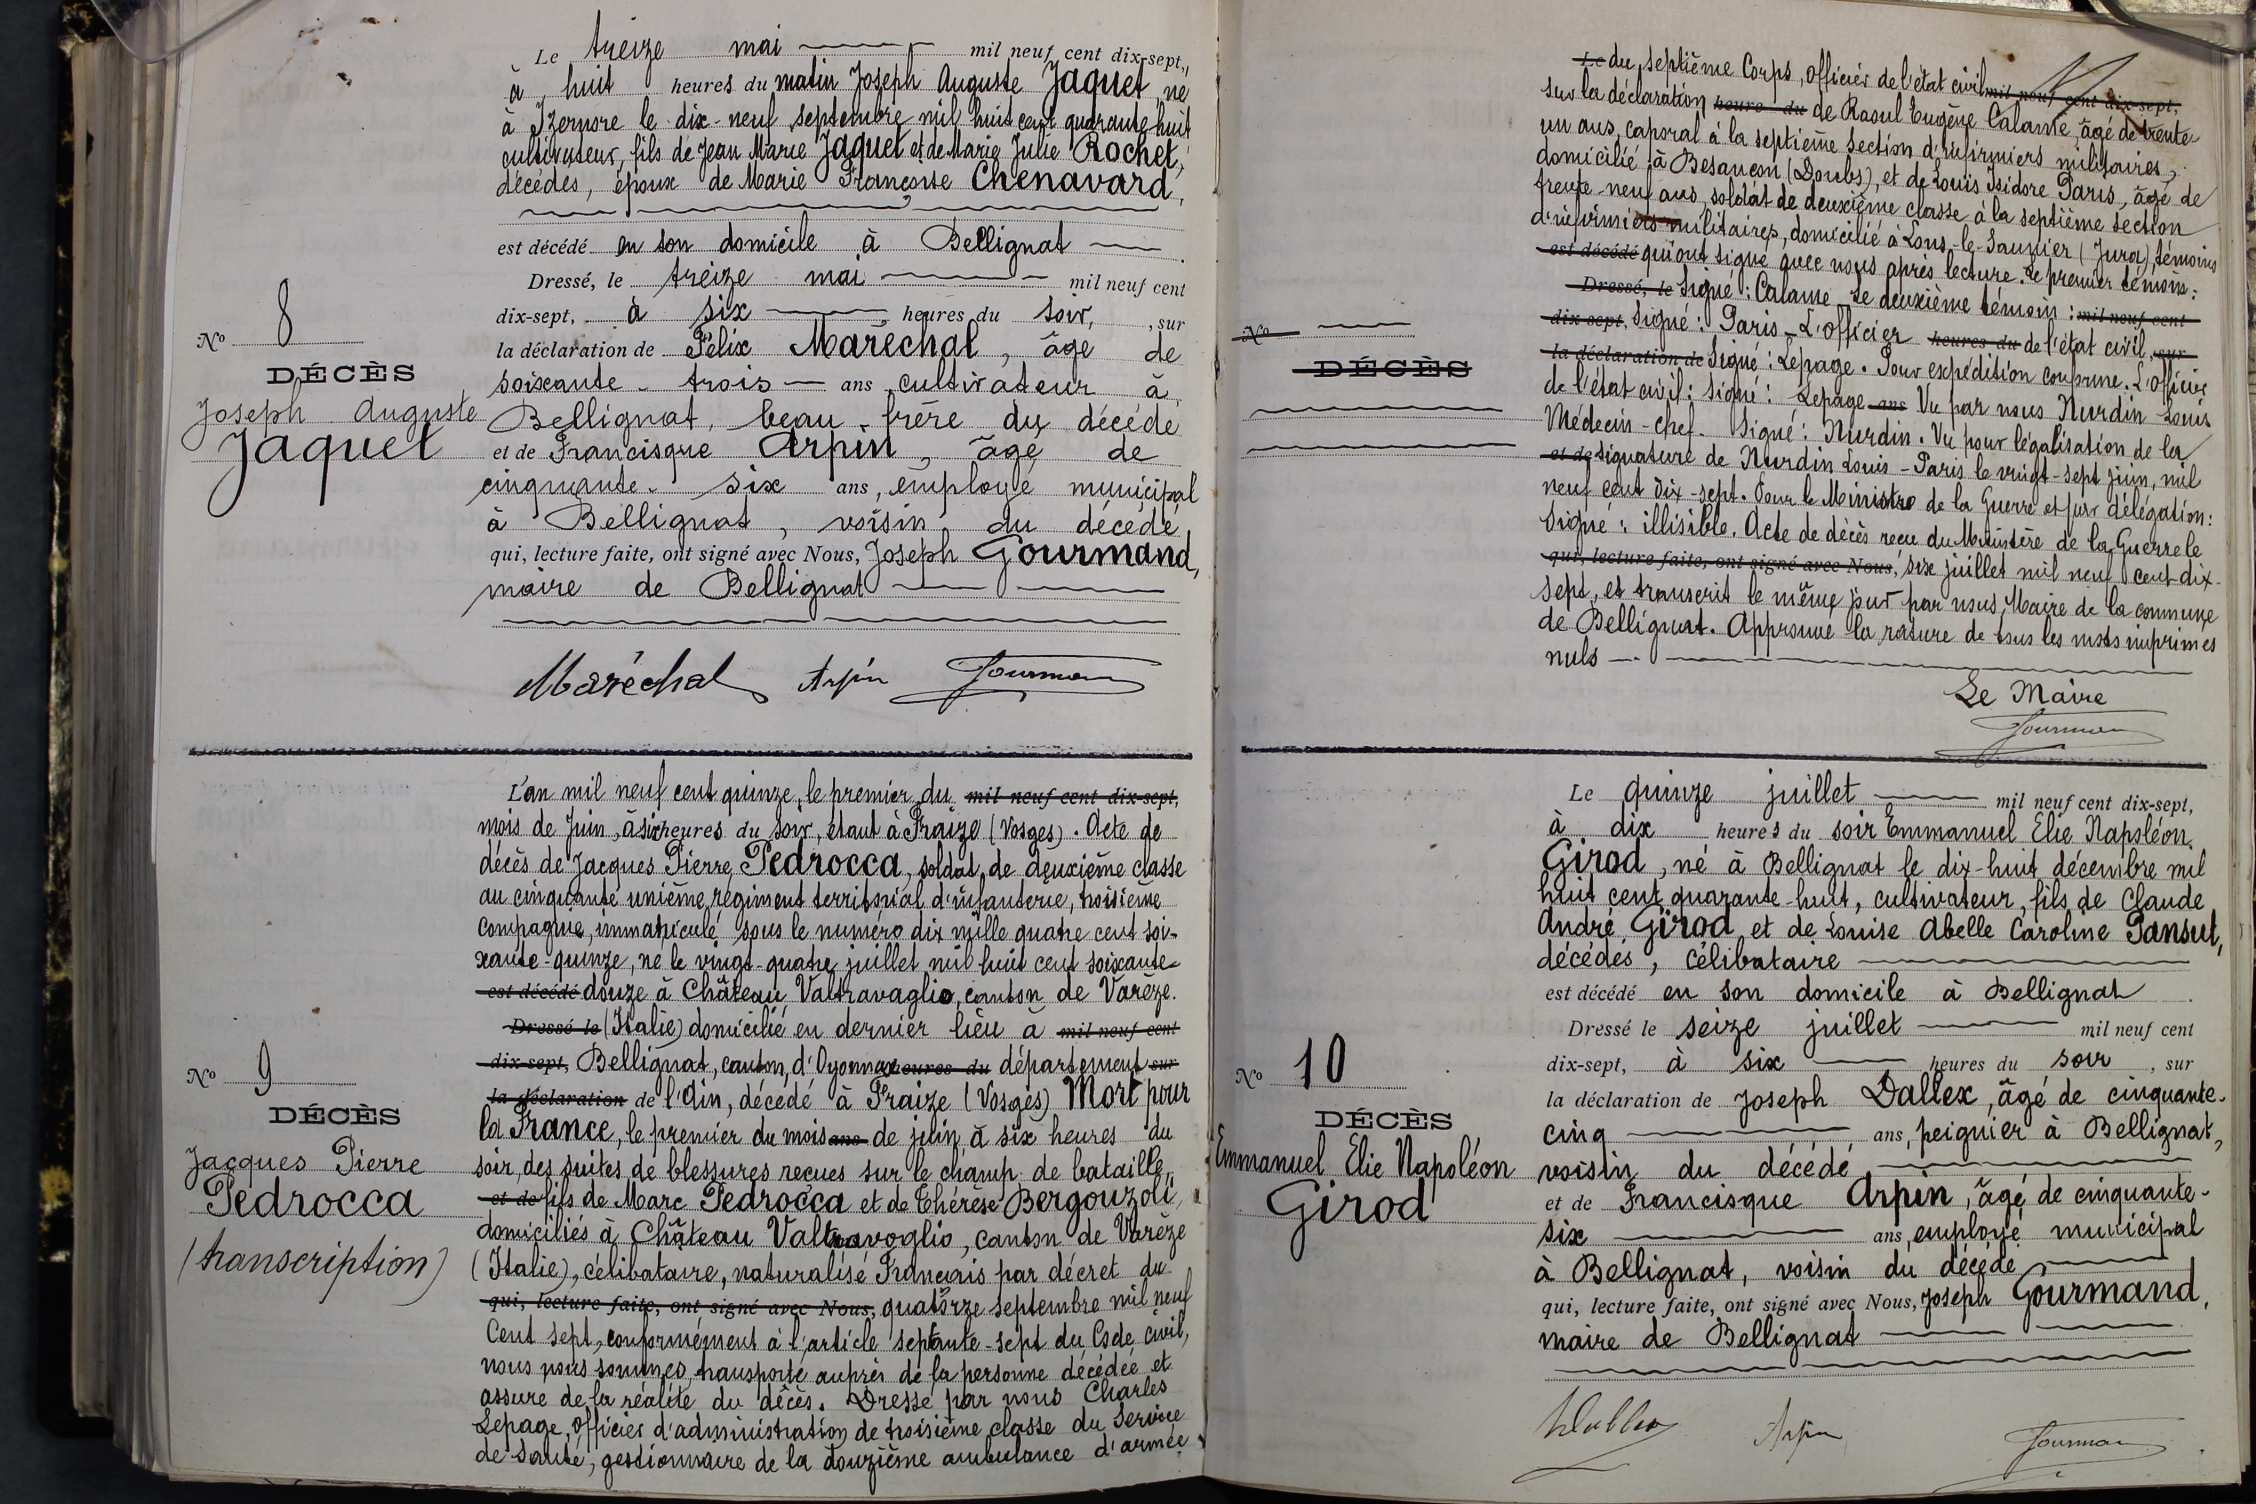 Le treize mai mil neuf cent dix-sept,
à huit heures du matin Joseph Auguste Jaquet, né
à Izernore le dix-neuf septembre mil huit cent quarante-huit
cultivateur, fils de Jean Marie Jaquet et de Marie Julie Rochet,
décédés, époux de Marie Françoise Chenavard,
est décédé en son domicile à Bellignat
Dressé, le treize mai mil neuf cent
dix-sept, à six heures du soir, , sur
la déclaration de Félix Maréchal, âgé de
soixante-trois ans, cultivateur à
Bellignat, beau-frère du décédé
et de Francisque Arpin, âgé de
cinquante-six ans, employé municipal
à Bellignat, voisin du décédé,
qui, lecture faite, ont signé avec Nous, Joseph Gourmand,
maire de Bellignat
Maréchal Arpin Gourmand
No 8
DÉCÈS
Joseph Auguste
Jaquet
L'an mil neuf cent quinze, le premier du mil neuf cent dix-sept,
mois de Juin, à six heures du soir, étant à Fraize (Vosges). Acte de
décès de Jacques Pierre Pedrocca, soldat de deuxième classe
au cinquante unième régiment territorial d'infanterie, troisième
compagnie, immatriculé sous le numéro dix mille quatre cent soi-
xante-quinze, né le vingt-quatre juillet mil huit cent soixante-
est décédé douze à Château Valtravaglio, canton de Varèze.
Dressé le (Italie) domicilié en dernier lieu à mil neuf cent
dix-sept, Bellignat, canton d'Oyonnax heures du département sur
la déclaration de l'Ain, décédé à Fraize (Vosges) Mort pour
la France, le premier du mois ans de juin à six heures du
soir, des suites de blessures reçues sur le champ de bataille,
et de fils de Marc Pedrocca et de Thérèse Bergouzoli,
domiciliés à Château Valtravoglio, canton de Varèze
(Italie), célibataire, naturalisé Français par décret du
qui, lecture faite, ont signé avec Nous, quatorze septembre mil neuf
cent sept, conformément à l'article septante-sept du Code civil,
nous nous sommes transporté auprès de la personne décédée et
assure de la réalité du décès. Dressé par nous Charles
Lepage, officier d'administration de troisième classe du Service
de Santé, gestionnaire de la douzième ambulance d'armée
No 9
DÉCÈS
Jacques Pierre
Pedrocca
(transcription)
Le du septième Corps, officier de l'état civil mil neuf cent dix-sept,
sur la déclaration heure du de Raoul Eugène Calame, âgé de trente-
un ans, caporal à la septième section d'infirmiers militaires,
domicilié à Besançon (Doubs), et de Louis Isidore Paris, âgé de
trente-neuf ans, soldat de deuxième classe à la septième section
d'infirmiers militaires, domicilié à Lons-le-Saunier (Jura), témoins
est décédé qui ont signé avec nous après lecture. Le premier témoin :
Dressé, le Signé : Calame - Le deuxième témoin : mil neuf cent
dix-sept, Signé : Paris - L'officier heures du de l'état civil, sur
la déclaration de Signé : Lepage. Pour expédition conforme. L'officier
de l'état civil : Signé : Lepage ans Vu par nous Nurdin Louis
Médecin-chef. Signé : Nurdin. Vu pour légalisation de la
et de signature de Nurdin Louis - Paris le vingt-sept juin, mil
neuf cent dix-sept. Pour le Ministre de la Guerre et par délégation :
Signé : illisible. Acte de décès reçu du Ministère de la Guerre le
qui, lecture faite, ont signé avec Nous, six juillet mil neuf cent dix-
sept, et transcrit le même jour par nous, Maire de la commune
de Bellignat. Approuvé la rature de tous les mots imprimés
nuls
Le Maire
Gourmand
No
DÉCÈS
Le quinze juillet mil neuf cent dix-sept,
à dix heures du soir Emmanuel Elie Napoléon
Girod, né à Bellignat le dix-huit décembre mil
huit cent quarante-huit, cultivateur, fils de Claude
André Girod et de Louise Abelle Caroline Pansut,
décédés, célibataire
est décédé en son domicile à Bellignat
Dressé le seize juillet mil neuf cent
dix-sept, à six heures du soir , sur
la déclaration de Joseph Dallex, âgé de cinquante-
cinq ans, peignier à Bellignat,
voisin du décédé
et de Francisque Arpin, âgé de cinquante-
six ans, employé municipal
à Bellignat, voisin du décédé
qui, lecture faite, ont signé avec Nous, Joseph Gourmand,
maire de Bellignat
Arpin Gourmand
No 10
DÉCÈS
Emmanuel Elie Napoléon
Girod